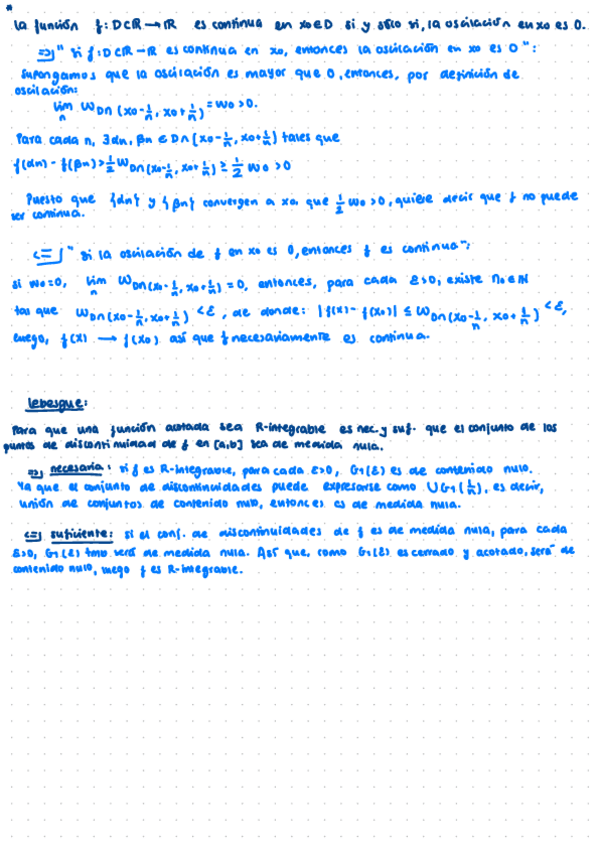 *
la función f: D⊂ℝ → ℝ es continua en x₀∈D si y sólo si, la oscilación en x₀ es 0.
=>] " si f: D⊂ℝ → ℝ es continua en x₀, entonces la oscilación en x₀ es 0 ":
supongamos que la oscilación es mayor que 0, entonces, por definición de
oscilación:
lim_n ω_{D∩(x₀-1/n, x₀+1/n)} = ω₀ > 0.
Para cada n, ∃ αn, βn ∈ D∩(x₀-1/n, x₀+1/n) tales que
f(αn) - f(βn) > 1/2 ω_{D∩(x₀-1/n, x₀+1/n)} ≥ 1/2 ω₀ > 0
Puesto que {αn} y {βn} convergen a x₀, que 1/2 ω₀ > 0, quiere decir que f no puede
ser continua.
<=] " si la oscilación de f en x₀ es 0, entonces f es continua ":
si ω₀=0, lim_n ω_{D∩(x₀-1/n, x₀+1/n)} = 0, entonces, para cada ε>0, existe n₀∈ℕ
tal que ω_{D∩(x₀-1/n, x₀+1/n)} < ε, de donde: |f(x) - f(x₀)| ≤ ω_{D∩(x₀-1/n, x₀+1/n)} < ε,
luego, f(x) → f(x₀) así que f necesariamente es continua.
lebesgue:
Para que una función acotada sea R-integrable es nec. y suf. que el conjunto de los
puntos de discontinuidad de f en [a,b] sea de medida nula.
=>] necesaria: si f es R-integrable, para cada ε>0, G₁(ε) es de contenido nulo.
Ya que el conjunto de discontinuidades puede expresarse como ∪G₁(1/n), es decir,
unión de conjuntos de contenido nulo, entonces es de medida nula.
<=] suficiente: si el conj. de discontinuidades de f es de medida nula, para cada
ε>0, G₁(ε) tmb será de medida nula. Así que, como G₁(ε) es cerrado y acotado, será de
contenido nulo, luego f es R-integrable.